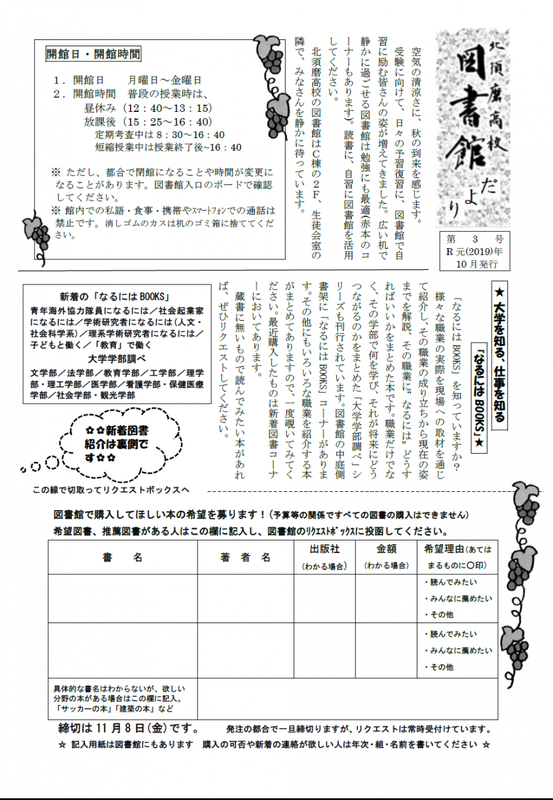 北須磨高校
図書館
だより
第 3 号
R元(2019)年
10月発行
空気の清涼さに、秋の到来を感じます。
受験に向けて、日々の予習復習に、図書館で自
習に励む皆さんの姿が増えてきました。広い机で
静かに過ごせる図書館は勉強にも最適(赤本のコ
ーナーもあります)。読書に、自習に図書館を活用
してください。
北須磨高校の図書館はC棟の2F、生徒会室の
隣で、みなさんを静かに待っています。
開館日・開館時間
1．開館日 月曜日～金曜日
2．開館時間 普段の授業時は、
昼休み（12：40～13：15）
放課後（15：25～16：40）
定期考査中は8：30～16：40
短縮授業中は授業終了後~16：40
※ ただし、都合で閉館になることや時間が変更に
なることがあります。図書館入口のボードで確認
してください。
※ 館内での私語・食事・携帯やスマートフォンでの通話は
禁止です。消しゴムのカスは机のゴミ箱に捨ててくだ
さい。
★ 大学を知る、仕事を知る
「なるには BOOKS」★
「なるには BOOKS」を知っていますか？
様々な職業の実際を現場への取材を通じ
て紹介し、その職業の成り立ちから現在の姿
までを解説、その職業に“なるには”どうす
ればいいかをまとめた本です。職業だけでな
く、その学部で何を学び、それが将来にどう
つながるのかをまとめた「大学学部調べ」シ
リーズも刊行されています。図書館の中庭側
書架に「なるには BOOKS」コーナーがありま
す。その他にもいろいろな職業を紹介する本
がまとめてありますので、一度覗いてみてく
ださい。最近購入したものは新着図書コーナ
ーにおいてあります。
蔵書に無いもので読んでみたい本があれ
ば、ぜひリクエストしてください。
新着の「なるには BOOKS」
青年海外協力隊員になるには／社会起業家
になるには／学術研究者になるには(人文・
社会科学系）／理系学術研究者になるには／
子どもと働く／「教育」で働く
大学学部調べ
文学部／法学部／教育学部／工学部／理学
部・理工学部／医学部／看護学部・保健医療
学部／社会学部・観光学部
☆☆新着図書
紹介は裏側で
す☆☆
この線で切取ってリクエストボックスへ
図書館で購入してほしい本の希望を募ります！（予算等の関係ですべての図書の購入はできません）
希望図書、推薦図書がある人はこの欄に記入し、図書館のリクエストボックスに投函してください。
書 名
著 者 名
出版社
（わかる場合）
金額
（わかる場合）
希望理由（あては
まるものに〇印）
・読んでみたい
・みんなに薦めたい
・その他
・読んでみたい
・みんなに薦めたい
・その他
具体的な書名はわからないが、欲しい
分野の本がある場合はこの欄に記入。
「サッカーの本」「建築の本」など
締切は 11 月 8 日(金) です。 発注の都合で一旦締切りますが、リクエストは常時受付けています。
☆ 記入用紙は図書館にもあります 購入の可否や新着の連絡が欲しい人は年次・組・名前を書いてください ☆